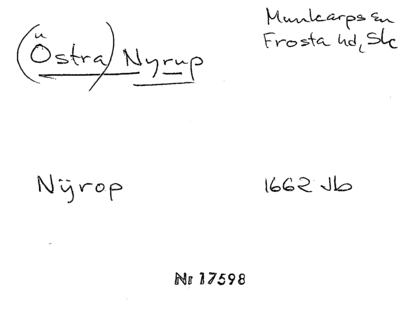 (Östra) Nyrup
Munkarps sn
Frosta hd, Sk
Nÿrop
1662 Jb
Nr 17598